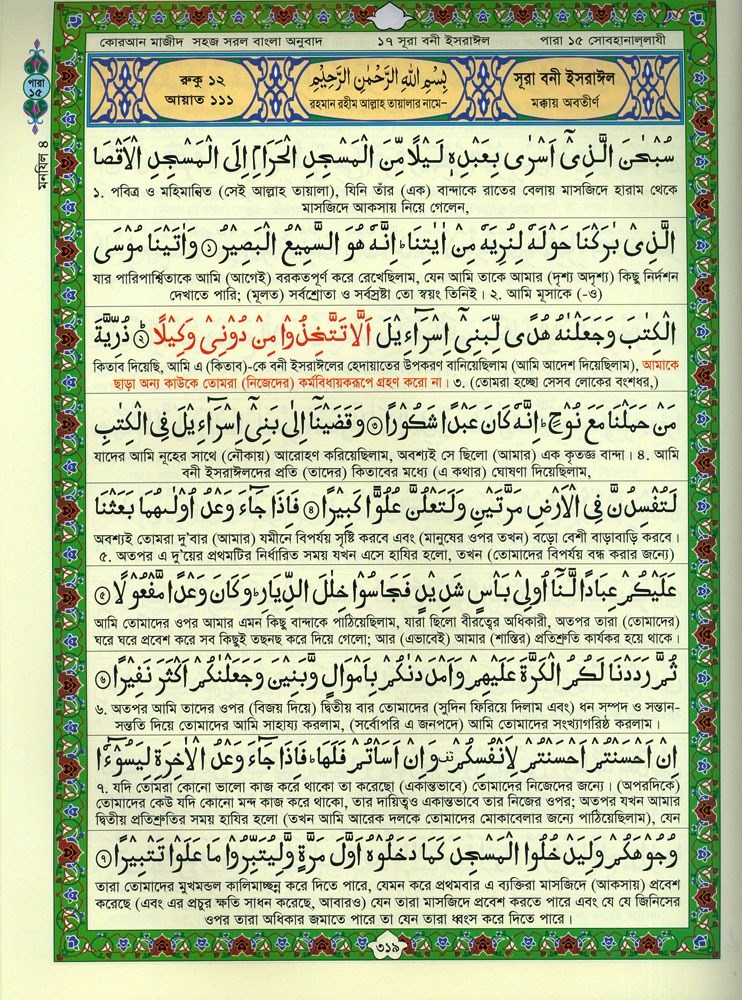 কোরআন মাজীদ সহজ সরল বাংলা অনুবাদ ১৭ সূরা বনী ইসরাঈল পারা ১৫ সোবহানাল্লাযী
পারা
১৫
মনযিল ৪
রুকু ১২
আয়াত ১১১
بِسْمِ اللهِ الرَّحْمٰنِ الرَّحِيْمِ
রহমান রহীম আল্লাহ তায়ালার নামে-
সূরা বনী ইসরাঈল
মক্কায় অবতীর্ণ
سُبْحٰنَ الَّذِىْٓ اَسْرٰى بِعَبْدِهٖ لَيْلًا مِّنَ الْمَسْجِدِ الْحَرَامِ اِلَى الْمَسْجِدِ الْاَقْصَا
১. পবিত্র ও মহিমান্বিত (সেই আল্লাহ তায়ালা), যিনি তাঁর (এক) বান্দাকে রাতের বেলায় মাসজিদে হারাম থেকে
মাসজিদে আকসায় নিয়ে গেলেন,
الَّذِىْ بٰرَكْنَا حَوْلَهٗ لِنُرِيَهٗ مِنْ اٰيٰتِنَا ؕ اِنَّهٗ هُوَ السَّمِيْعُ الْبَصِيْرُ ﴿১﴾ وَاٰتَيْنَا مُوْسَى
যার পারিপার্শ্বিতাকে আমি (আগেই) বরকতপূর্ণ করে রেখেছিলাম, যেন আমি তাকে আমার (দৃশ্য অদৃশ্য) কিছু নির্দশন
দেখাতে পারি; (মূলত) সর্বশ্রোতা ও সর্বস্রষ্টা তো স্বয়ং তিনিই। ২. আমি মূসাকে (-ও)
الْكِتٰبَ وَجَعَلْنٰهُ هُدًى لِّبَنِىْٓ اِسْرَآءِيْلَ اَلَّا تَتَّخِذُوْا مِنْ دُوْنِىْ وَكِيْلًا ﴿২﴾ ؕ ذُرِّيَّةَ
কিতাব দিয়েছি, আমি এ (কিতাব)-কে বনী ইসরাঈলের হেদায়াতের উপকরণ বানিয়েছিলাম (আমি আদেশ দিয়েছিলাম), আমাকে
ছাড়া অন্য কাউকে তোমরা (নিজেদের) কর্মবিধায়করূপে গ্রহণ করো না। ৩. (তোমরা হচ্ছো সেসব লোকের বংশধর,)
مَنْ حَمَلْنَا مَعَ نُوْحٍ ؕ اِنَّهٗ كَانَ عَبْدًا شَكُوْرًا ﴿৩﴾ وَقَضَيْنَآ اِلٰى بَنِىْٓ اِسْرَآءِيْلَ فِى الْكِتٰبِ
যাদের আমি নূহের সাথে (নৌকায়) আরোহণ করিয়েছিলাম, অবশ্যই সে ছিলো (আমার) এক কৃতজ্ঞ বান্দা। ৪. আমি
বনী ইসরাঈলদের প্রতি (তাদের) কিতাবের মধ্যে (এ কথার) ঘোষণা দিয়েছিলাম,
لَتُفْسِدُنَّ فِى الْاَرْضِ مَرَّتَيْنِ وَلَتَعْلُنَّ عُلُوًّا كَبِيْرًا ﴿৪﴾ فَاِذَا جَآءَ وَعْدُ اُوْلٰىهُمَا بَعَثْنَا
অবশ্যই তোমরা দু'বার (আমার) যমীনে বিপর্যয় সৃষ্টি করবে এবং (মানুষের ওপর তখন) বড়ো বেশী বাড়াবাড়ি করবে।
৫. অতপর এ দু'য়ের প্রথমটির নির্ধারিত সময় যখন এসে হাযির হলো, তখন (তোমাদের বিপর্যয় বন্ধ করার জন্যে)
عَلَيْكُمْ عِبَادًا لَّنَآ اُولِىْ بَاْسٍ شَدِيْدٍ فَجَاسُوْا خِلٰلَ الدِّيَارِ ؕ وَكَانَ وَعْدًا مَّفْعُوْلًا ﴿৫﴾
আমি তোমাদের ওপর আমার এমন কিছু বান্দাকে পাঠিয়েছিলাম, যারা ছিলো বীরত্বের অধিকারী, অতপর তারা (তোমাদের)
ঘরে ঘরে প্রবেশ করে সব কিছুই তছনছ করে দিয়ে গেলো; আর (এভাবেই) আমার (শাস্তির) প্রতিশ্রুতি কার্যকর হয়ে থাকে।
ثُمَّ رَدَدْنَا لَكُمُ الْكَرَّةَ عَلَيْهِمْ وَاَمْدَدْنٰكُمْ بِاَمْوَالٍ وَّبَنِيْنَ وَجَعَلْنٰكُمْ اَكْثَرَ نَفِيْرًا ﴿৬﴾
৬. অতপর আমি তাদের ওপর (বিজয় দিয়ে) দ্বিতীয় বার তোমাদের (সুদিন ফিরিয়ে দিলাম এবং) ধন সম্পদ ও সন্তান-
সন্ততি দিয়ে তোমাদের আমি সাহায্য করলাম, (সর্বোপরি এ জনপদে) আমি তোমাদের সংখ্যাগরিষ্ঠ করলাম।
اِنْ اَحْسَنْتُمْ اَحْسَنْتُمْ لِاَنْفُسِكُمْ وَاِنْ اَسَاْتُمْ فَلَهَا ؕ فَاِذَا جَآءَ وَعْدُ الْاٰخِرَةِ لِيَسُوْٓءٗا
৭. যদি তোমরা কোনো ভালো কাজ করে থাকো তা করেছো (একান্তভাবে) তোমাদের নিজেদের জন্যে। (অপরদিকে)
তোমাদের কেউ যদি কোনো মন্দ কাজ করে থাকো, তার দায়িত্বও একান্তভাবে তার নিজের ওপর; অতপর যখন আমার
দ্বিতীয় প্রতিশ্রুতির সময় হাযির হলো (তখন আমি আরেক দলকে তোমাদের মোকাবেলার জন্যে পাঠিয়েছিলাম), যেন
وُجُوْهَكُمْ وَلِيَدْخُلُوا الْمَسْجِدَ كَمَا دَخَلُوْهُ اَوَّلَ مَرَّةٍ وَّلِيُتَبِّرُوْا مَا عَلَوْا تَتْبِيْرًا ﴿৭﴾
তারা তোমাদের মুখমন্ডল কালিমাচ্ছন্ন করে দিতে পারে, যেমন করে প্রথমবার এ ব্যক্তিরা মাসজিদে (আকসায়) প্রবেশ
করেছে (এবং এর প্রচুর ক্ষতি সাধন করেছে, আবারও) যেন তারা মাসজিদে প্রবেশ করতে পারে এবং যে যে জিনিসের
ওপর তারা অধিকার জমাতে পারে তা যেন তারা ধ্বংস করে দিতে পারে।
৩১৯